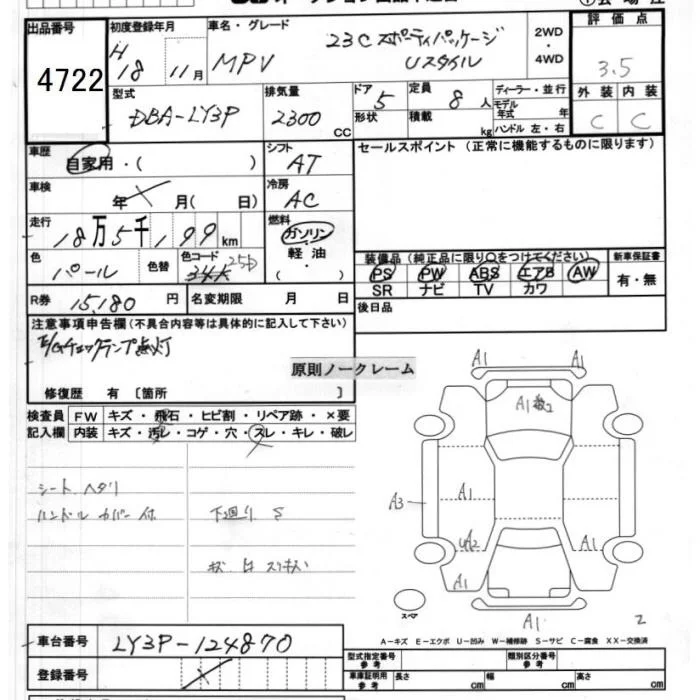 出品番号
4722
初度登録年月
H 18 11月
車名・グレード
MPV
23C スポーティパッケージ
Uスタイル
2WD
・
4WD
評価点
3.5
外装 内装
C C
型式
DBA-LY3P
排気量
2300 CC
ドア 5
形状
定員 8 人
積載 kg
ディーラー・並行
モデル
年式 年
ハンドル 左・右
車歴
自家用・( )
シフト
AT
セールスポイント (正常に機能するものに限ります)
車検
年 月( 日)
冷房
AC
走行
18万5千199km
燃料
ガソリン
・
軽油
・( )
色
パール
色替
色コード
34K 25D
装備品 (純正品に限り○をつけてください)
PS PW ABS エアB AW
SR ナビ TV カワ
新車保証書
有・無
R券 15,180 円
名変期限 月 日
後日品
注意事項申告欄(不具合内容等は具体的に記入して下さい)
E/Gチェックランプ点灯
原則ノークレーム
修復歴 有 〔箇所 〕
検査員
記入欄
FW キズ・飛石・ヒビ割・リペア跡・×要
内装 キズ・汚レ・コゲ・穴・スレ・キレ・破レ
シート ヘタリ
ハンドル カバー付
下廻り S
A1
A1
A1
A3
A1
A1
UA2
A1
A1
A1
スペア
2
A-キズ E-エクボ U-凹み W-補修跡 S-サビ C-腐食 XX-交換済
車台番号
LY3P-124870
登録番号
型式指定番号
参考
類別区分番号
参考
車庫証明用
参考
長さ cm
幅 cm
高さ cm